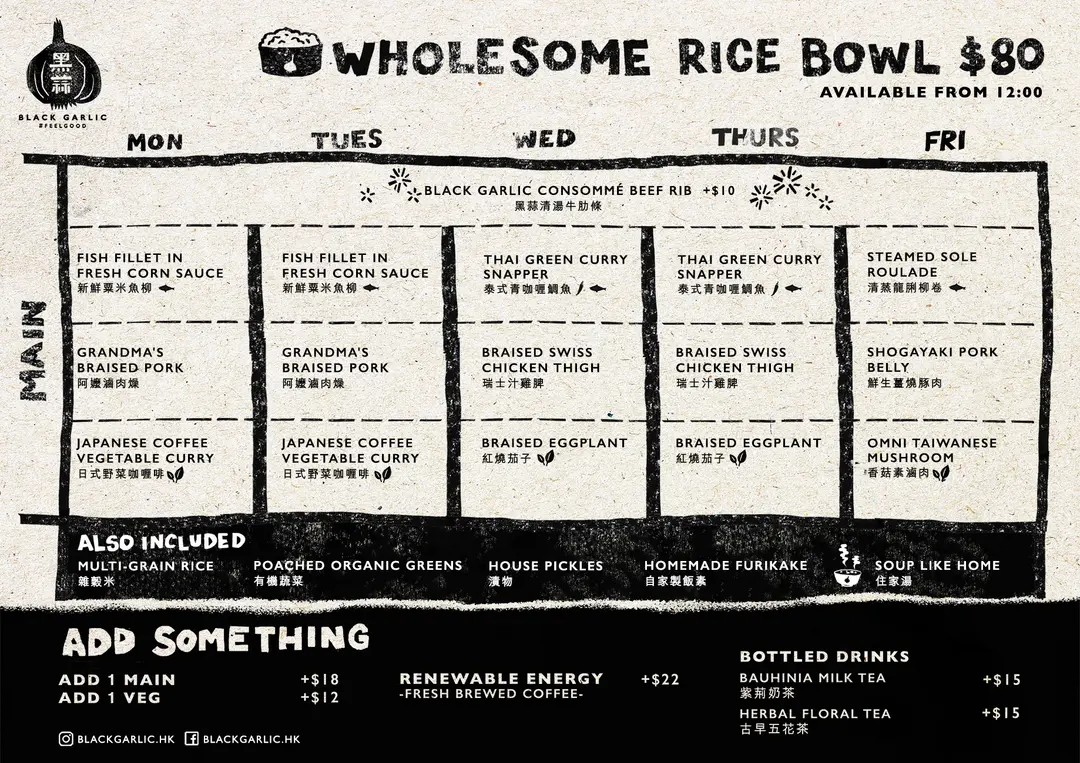 黑蒜
BLACK GARLIC
#FEELGOOD
WHOLESOME RICE BOWL $80
AVAILABLE FROM 12:00
MON
TUES
WED
THURS
FRI
MAIN
BLACK GARLIC CONSOMMÉ BEEF RIB +$10
黑蒜清湯牛肋條
FISH FILLET IN
FRESH CORN SAUCE
新鮮粟米魚柳
FISH FILLET IN
FRESH CORN SAUCE
新鮮粟米魚柳
THAI GREEN CURRY
SNAPPER
泰式青咖喱鯛魚
THAI GREEN CURRY
SNAPPER
泰式青咖喱鯛魚
STEAMED SOLE
ROULADE
清蒸龍脷柳卷
GRANDMA'S
BRAISED PORK
阿嬤滷肉燥
GRANDMA'S
BRAISED PORK
阿嬤滷肉燥
BRAISED SWISS
CHICKEN THIGH
瑞士汁雞脾
BRAISED SWISS
CHICKEN THIGH
瑞士汁雞脾
SHOGAYAKI PORK
BELLY
鮮生薑燒豚肉
JAPANESE COFFEE
VEGETABLE CURRY
日式野菜咖喱啡
JAPANESE COFFEE
VEGETABLE CURRY
日式野菜咖喱啡
BRAISED EGGPLANT
紅燒茄子
BRAISED EGGPLANT
紅燒茄子
OMNI TAIWANESE
MUSHROOM
香菇素滷肉
ALSO INCLUDED
MULTI-GRAIN RICE
雜穀米
POACHED ORGANIC GREENS
有機蔬菜
HOUSE PICKLES
漬物
HOMEMADE FURIKAKE
自家製飯素
SOUP LIKE HOME
住家湯
ADD SOMETHING
ADD 1 MAIN +$18
ADD 1 VEG +$12
RENEWABLE ENERGY +$22
-FRESH BREWED COFFEE-
BOTTLED DRINKS
BAUHINIA MILK TEA +$15
紫荊奶茶
HERBAL FLORAL TEA +$15
古早五花茶
BLACKGARLIC.HK BLACKGARLIC.HK